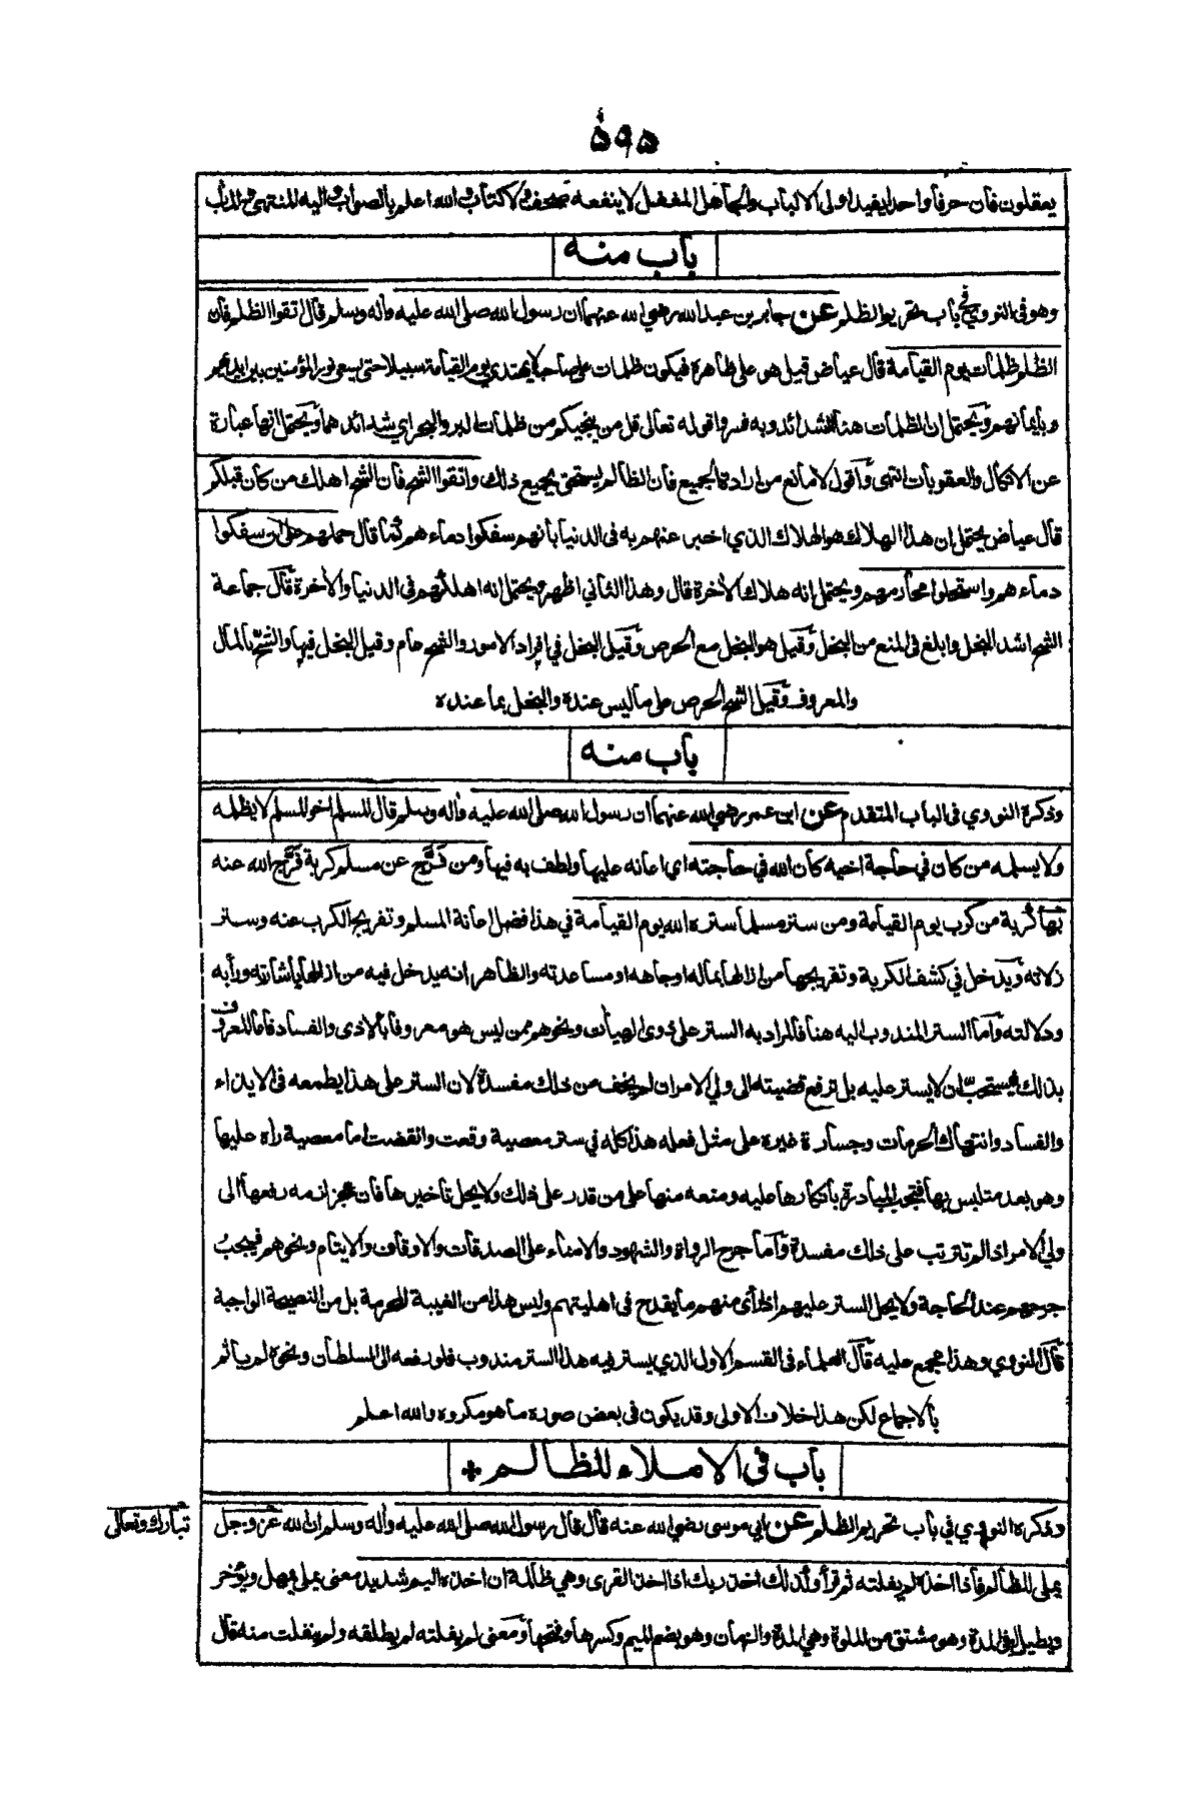 ٥٩٥
يعقلون فان حرفا واحدا يفيد اولى الالباب والجاهل المغفل لا ينفعه صحف ولا كتاب والله اعلم بالصواب واليه المنتهى والمآب
باب منه
وهو في النووي في باب تحريم الظلم عن جابر بن عبد الله رضي الله عنهما ان رسول الله صلى الله عليه وأله وسلم قال اتقوا الظلم فان
الظلم ظلمات يوم القيامة قال عياض قيل هو على ظاهره فيكون ظلمات على صاحبه لا يهتدي يوم القيامة سبيلا حتى يسعى نور المؤمنين بين ايديهم
وبايمانهم ويحتمل ان الظلمات هنا الشدائد وبه فسروا قوله تعالى قل من ينجيكم من ظلمات البر والبحر اي شدائدهما ويحتمل انها عبارة
عن الانكال والعقوبات انتهى واقول لا مانع من ارادة الجميع فان الظالم يستحق بجميع ذلك واتقوا الشح فان الشح اهلك من كان قبلكم
قال عياض يحتمل ان هذا الهلاك هو الهلاك الذي اخبر عنهم به في الدنيا بانهم سفكوا دماءهم كما قال حملهم على ان سفكوا
دماءهم واستحلوا محارمهم ويحتمل انه هلاك الأخرة قال وهذا الثاني اظهر ويحتمل انه اهلكهم في الدنيا والأخرة قال جماعة
الشح اشد البخل وابلغ في المنع من البخل وقيل هو البخل مع الحرص وقيل البخل في افراد الامور والشح عام وقيل البخل فيها والشح بالمال
والمعروف وقيل الشح الحرص على ما ليس عنده والبخل بما عنده
باب منه
وذكره النووي في الباب المتقدم عن ابن عمر رضي الله عنهما ان رسول الله صلى الله عليه وأله وسلم قال المسلم اخو المسلم لا يظلمه
ولا يسلمه من كان في حاجة اخيه كان الله في حاجته اي اعانه عليها ولطف به فيها ومن فرّج عن مسلم كربة فرّج الله عنه
بها كربة من كرب يوم القيامة ومن ستر مسلما ستره الله يوم القيامة في هذا فضل اعانة المسلم وتفريج الكرب عنه وستر
زلاته ويدخل في كشف الكربة وتفريجها من ازالها بماله او جاهه او مساعدته والظاهر انه يدخل فيه من ازالها باشارته ورأيه
ودلالته واما الستر المندوب اليه هنا فالمراد به الستر على ذوى الهيأت ونحوهم ممن ليس هو معروفا بالاذى والفساد فاما المعروف
بذلك فيستحب ان لا يستر عليه بل ترفع قضيته الى ولي الامر ان لم يخف من ذلك مفسدة لان الستر على هذا يطمعه في الايذاء
والفساد وانتهاك الحرمات وجسارة غيره على مثل فعله هذا كله في ستر معصية وقعت وانقضت اما معصية راه عليها
وهو بعد متلبس بها فتجب المبادرة بانكارها عليه ومنعه منها على من قدر على ذلك ولا يحل تأخيرها فان عجز لزمه رفعها الى
ولي الامر اذا لم تترتب على ذلك مفسدة واما جرح الرواة والشهود والامناء على الصدقات والاوقاف والايتام ونحوهم فيجب
جرحهم عند الحاجة ولا يحل الستر عليهم اذا رأى منهم ما يقدح في اهليتهم وليس هذا من الغيبة المحرمة بل من النصيحة الواجبة
قال النووي وهذا مجمع عليه قال العلماء في القسم الاول الذي يستر فيه هذا الستر مندوب فلو رفعه الى السلطان ونحوه لم يأثم
بالاجماع لكن هذا خلاف الاولى وقد يكون في بعض صوره ما هو مكروه والله اعلم
باب في الاملاء للظالم +
وذكره النووي في باب تحريم الظلم عن ابي موسى رضي الله عنه قال قال رسول الله صلى الله عليه وأله وسلم ان الله عز وجل
تبارك وتعالى
يملي للظالم فاذا اخذه لم يفلته ثم قرأ وكذلك اخذ ربك اذا اخذ القرى وهي ظالمة ان اخذه اليم شديد معنى يملي يمهل ويؤخر
ويطيل له في المدة وهو مشتق من الملوة وهي المدة والزمان وهو بضم الميم وكسرها وفتحها ومعنى لم يفلته لم يطلقه ولم ينفلت منه قال